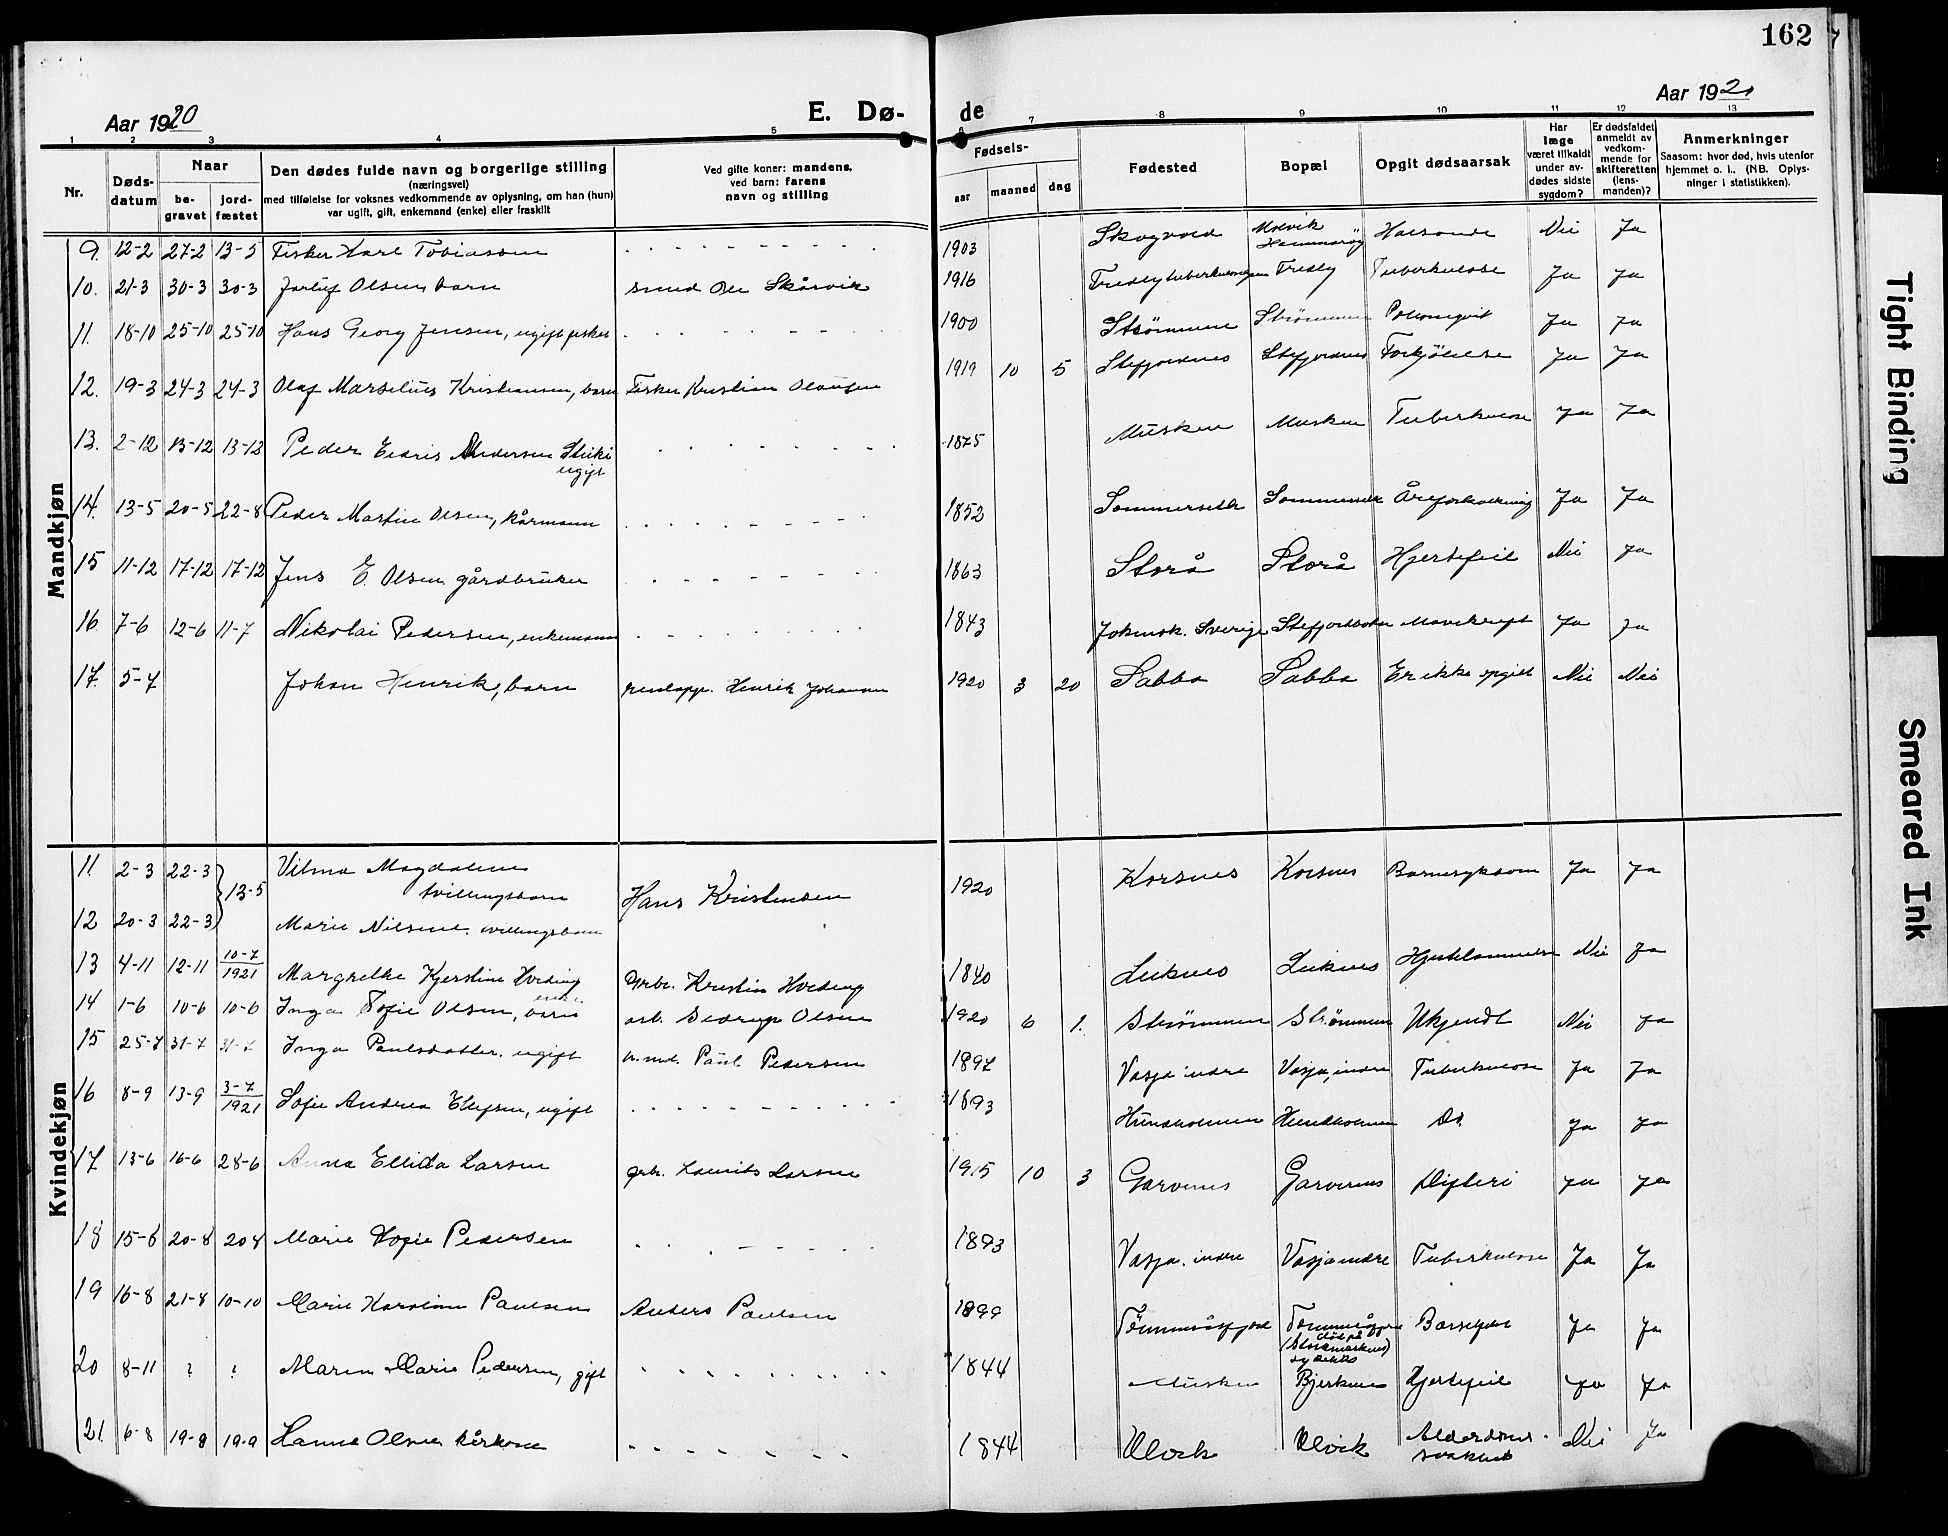 162
Aar 1920
E. Dø-
de
Aar 1920
1 2 3 4 5 6 7 8 9 10 11 12 13
Nr.
Døds-
datum
Naar
be-
gravet
jord-
fæstet
Den dødes fulde navn og borgerlige stilling
(næringsvei)
med tilføielse for voksnes vedkommende av oplysning, om han (hun)
var ugift, gift, enkemand (enke) eller fraskilt
Ved gifte koner: mandens,
ved barn: farens
navn og stilling
Fødsels-
aar
maaned
dag
Fødested
Bopæl
Opgit dødsaarsak
Har
læge
været tilkaldt
under av-
dødes sidste
sygdom?
Er dødsfaldet
anmeldt av
vedkom-
mende for
skifteretten
(lens-
manden)?
Anmerkninger
Saasom: hvor død, hvis utenfor
hjemmet o. l.. (NB. Oplys-
ninger i statistikken).
Mandkjøn
9. 12-2 27-2 13-5 Fisker Karl Tobiassen 1903 Skogvold Hammarøy Nei Ja
10. 21-3 30-3 30-3 Olsen barn smed Skårvik 1916 Fredly Tuberkulose Ja Ja
11. 18-10 25-10 25-10 Hans Georg Jensen, ugift fisker 1900 Strømmen Strømmen Ja Ja
12. 19-3 24-3 24-3 Olaf Marselius Kristiansen, barn Fisker Kristian Olaussen 1919 10 5 Stefjordnes Stefjordnes Forkjølelse Ja Ja
13. 2-12 13-12 13-12 Peder Andersen
ugift 1875 Musken Musken Tuberkulose Ja Ja
14. 13-5 20-5 22-8 Peder Martin Olsen, kårmann 1852 Sommerset Sommerset Åreforkalkning Ja Ja
15 11-12 17-12 17-12 Jens E. Olsen gårdbruker 1863 Storå Storå Hjertefeil Nei Ja
16 7-6 12-6 11-7 Nikolai Pedersen, enkemann 1843 Jokmok. Sverige Stefjordbotn Mavekreft Ja Ja
17. 5-7 Johan Henrik, barn renlapp. Henrik Johansen 1920 3 20 Sabba Sabba Er ikke opgitt Nei Nei
Kvindekjøn
11. 2-3 22-3 13-5 Vilma Magdalene
tvillingbarn Hans Kristensen 1920 Korsnes Korsnes Barnesykdom Ja Ja
12 20-3 22-3 Marie Nilsine tvillingbarn
13 4-11 12-11 10-7/1921 Margrethe Kjerstine Hveding
enke Grbr. Kristen Hveding 1840 Leknes Leknes Hjertelammelse Nei Ja
14 1-6 10-6 10-6 Inga Sofie Olsen, barn arb. Olsen 1920 6 1. Strømmen Strømmen Ukjendt Nei Ja
15 25-7 31-7 31-7 Inga Paulsdatter. ugift Paul Pedersen 1897 Vasja indre Vasja, indre Tuberkulose Ja Ja
16 8-9 13-9 3-7/1921 Sofie Andrea Ellefsen, ugift 1893 Hundholmen Hundholmen Do Ja Ja
17 13-6 16-6 28-6 Anna Ellida Larsen grbr. Laurits Larsen 1915 10 3 Garvenes Garvenes Difteri Ja Ja
18 15-6 20-8 20 8 Marie Sofie Pedersen 1893 Vasja. indre Vasja indre Tuberkulose Ja Ja
19 16-8 21-8 10-10 Marie Karoline Paulsen Anders Paulsen 1899 Tømmeråsfjord Tømmeråsfjord
død på
(Stokmarknes)
sykehus Barselfeber Ja Ja
20 8-11 ? ? Maren Marie Pedersen, gift 1844 Musken Bjerknes Hjertefeil Ja Ja
21. 6-8 19-8 19-9 Hanna Olsen kårkone 1844 Ulvik Ulvik Alderdoms-
svakhet Nei Ja
Tight Binding
Smeared Ink